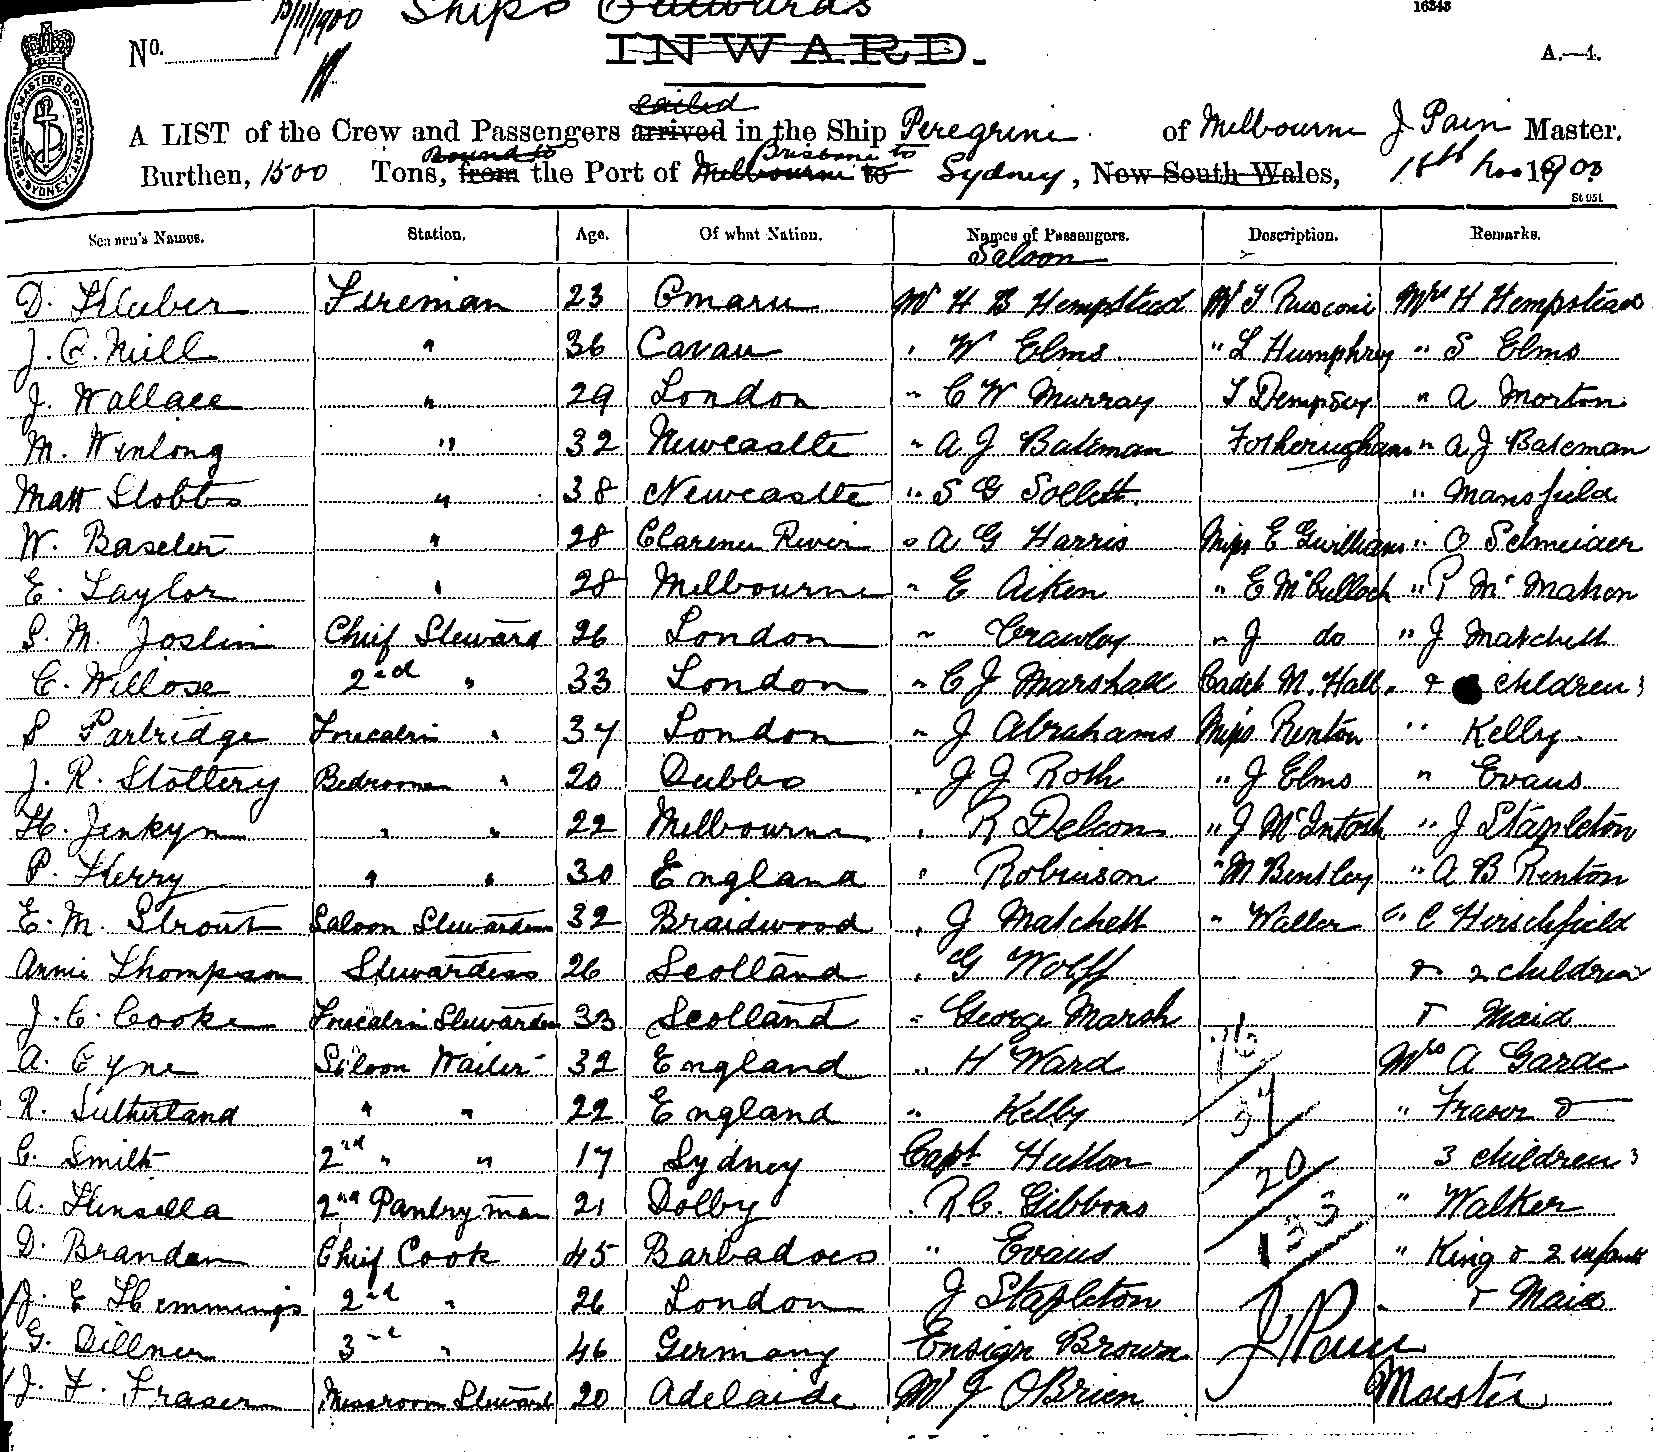 15/11/1900 Ships Outwards 16348
No. INWARD. A.—4.
SHIPPING MASTERS DEPARTMENT SYDNEY
sailed
A LIST of the Crew and Passengers arrived in the Ship Peregrine of Melbourne J Pain Master.
Bound to Brisbane to
Burthen, 1500 Tons, from the Port of Melbourne to Sydney, New South Wales, 15th Nov 1900
St 951
Seamen's Names. Station. Age. Of what Nation. Names of Passengers. Description. Remarks.
Saloon
D. Fireman 23 Omaru Mr H B Hempstead Mr T Rusconi Mrs H Hempstead
J. C. Nill " 36 Cavan " W Elms " L Humphrey " S Elms
J. Wallace " 29 London " C W Murray T Dempsey " A Morton
M. Winlong " 32 Newcastle " A J Bateman Fotheringham " A J Bateman
Matt Stobbs " 38 Newcastle " S G Sollett " Mansfield
W. Baseler " 28 Clarence River " A G Harris Miss E Gwilliams " O Schneider
E. Taylor " 28 Melbourne " E Aiken " E McCulloch " P McMahon
S. M. Joslin Chief Steward 26 London " Crawley " J do " J Matchett
C. Willose 2nd " 33 London " C J Marshall Cadet M. Hall " & children 3
S Partridge Forecabin " 34 London " J Abrahams Miss Renton " Kelly
J. R. Stottery Bedroom " 20 Dubbo " J J Roth " J Elms " Evans
H. Jenkyn " " 22 Melbourne " R Delcon " J McIntosh " J Stapleton
P. Herry " " 30 England " Robinson " M Bentley " A B Renton
E. M. Strout Saloon Stewardess 32 Braidwood " J Matchett " Waller " C Hirschfield
Annie Thompson Stewardess 26 Scotland " G Wolff & 2 children
J. C. Cooke Forecabin Stewardess 33 Scotland " George Marsh & Maid
A. Cyne Saloon Waiter 32 England " H Ward 76 Mrs A Garde
R. Sutherland " " 22 England " Kelly 37 " Fraser &
C. Smith 2nd " " 17 Sydney Capt Hutton 20 3 children 3
A. Hinsella 2nd Pantryman 21 Dolby " R C. Gibbons 133 " Walker
D. Brandon Chief Cook 45 Barbadoes " Evans " King & 2 infants
J. E Hemmings 2nd " 26 London J Stapleton & Maid
G. Dillner 3rd " 46 Germany Ensign Brown J Pain
J. F. Fraser Messroom Steward 20 Adelaide Mr J O'Brien Master